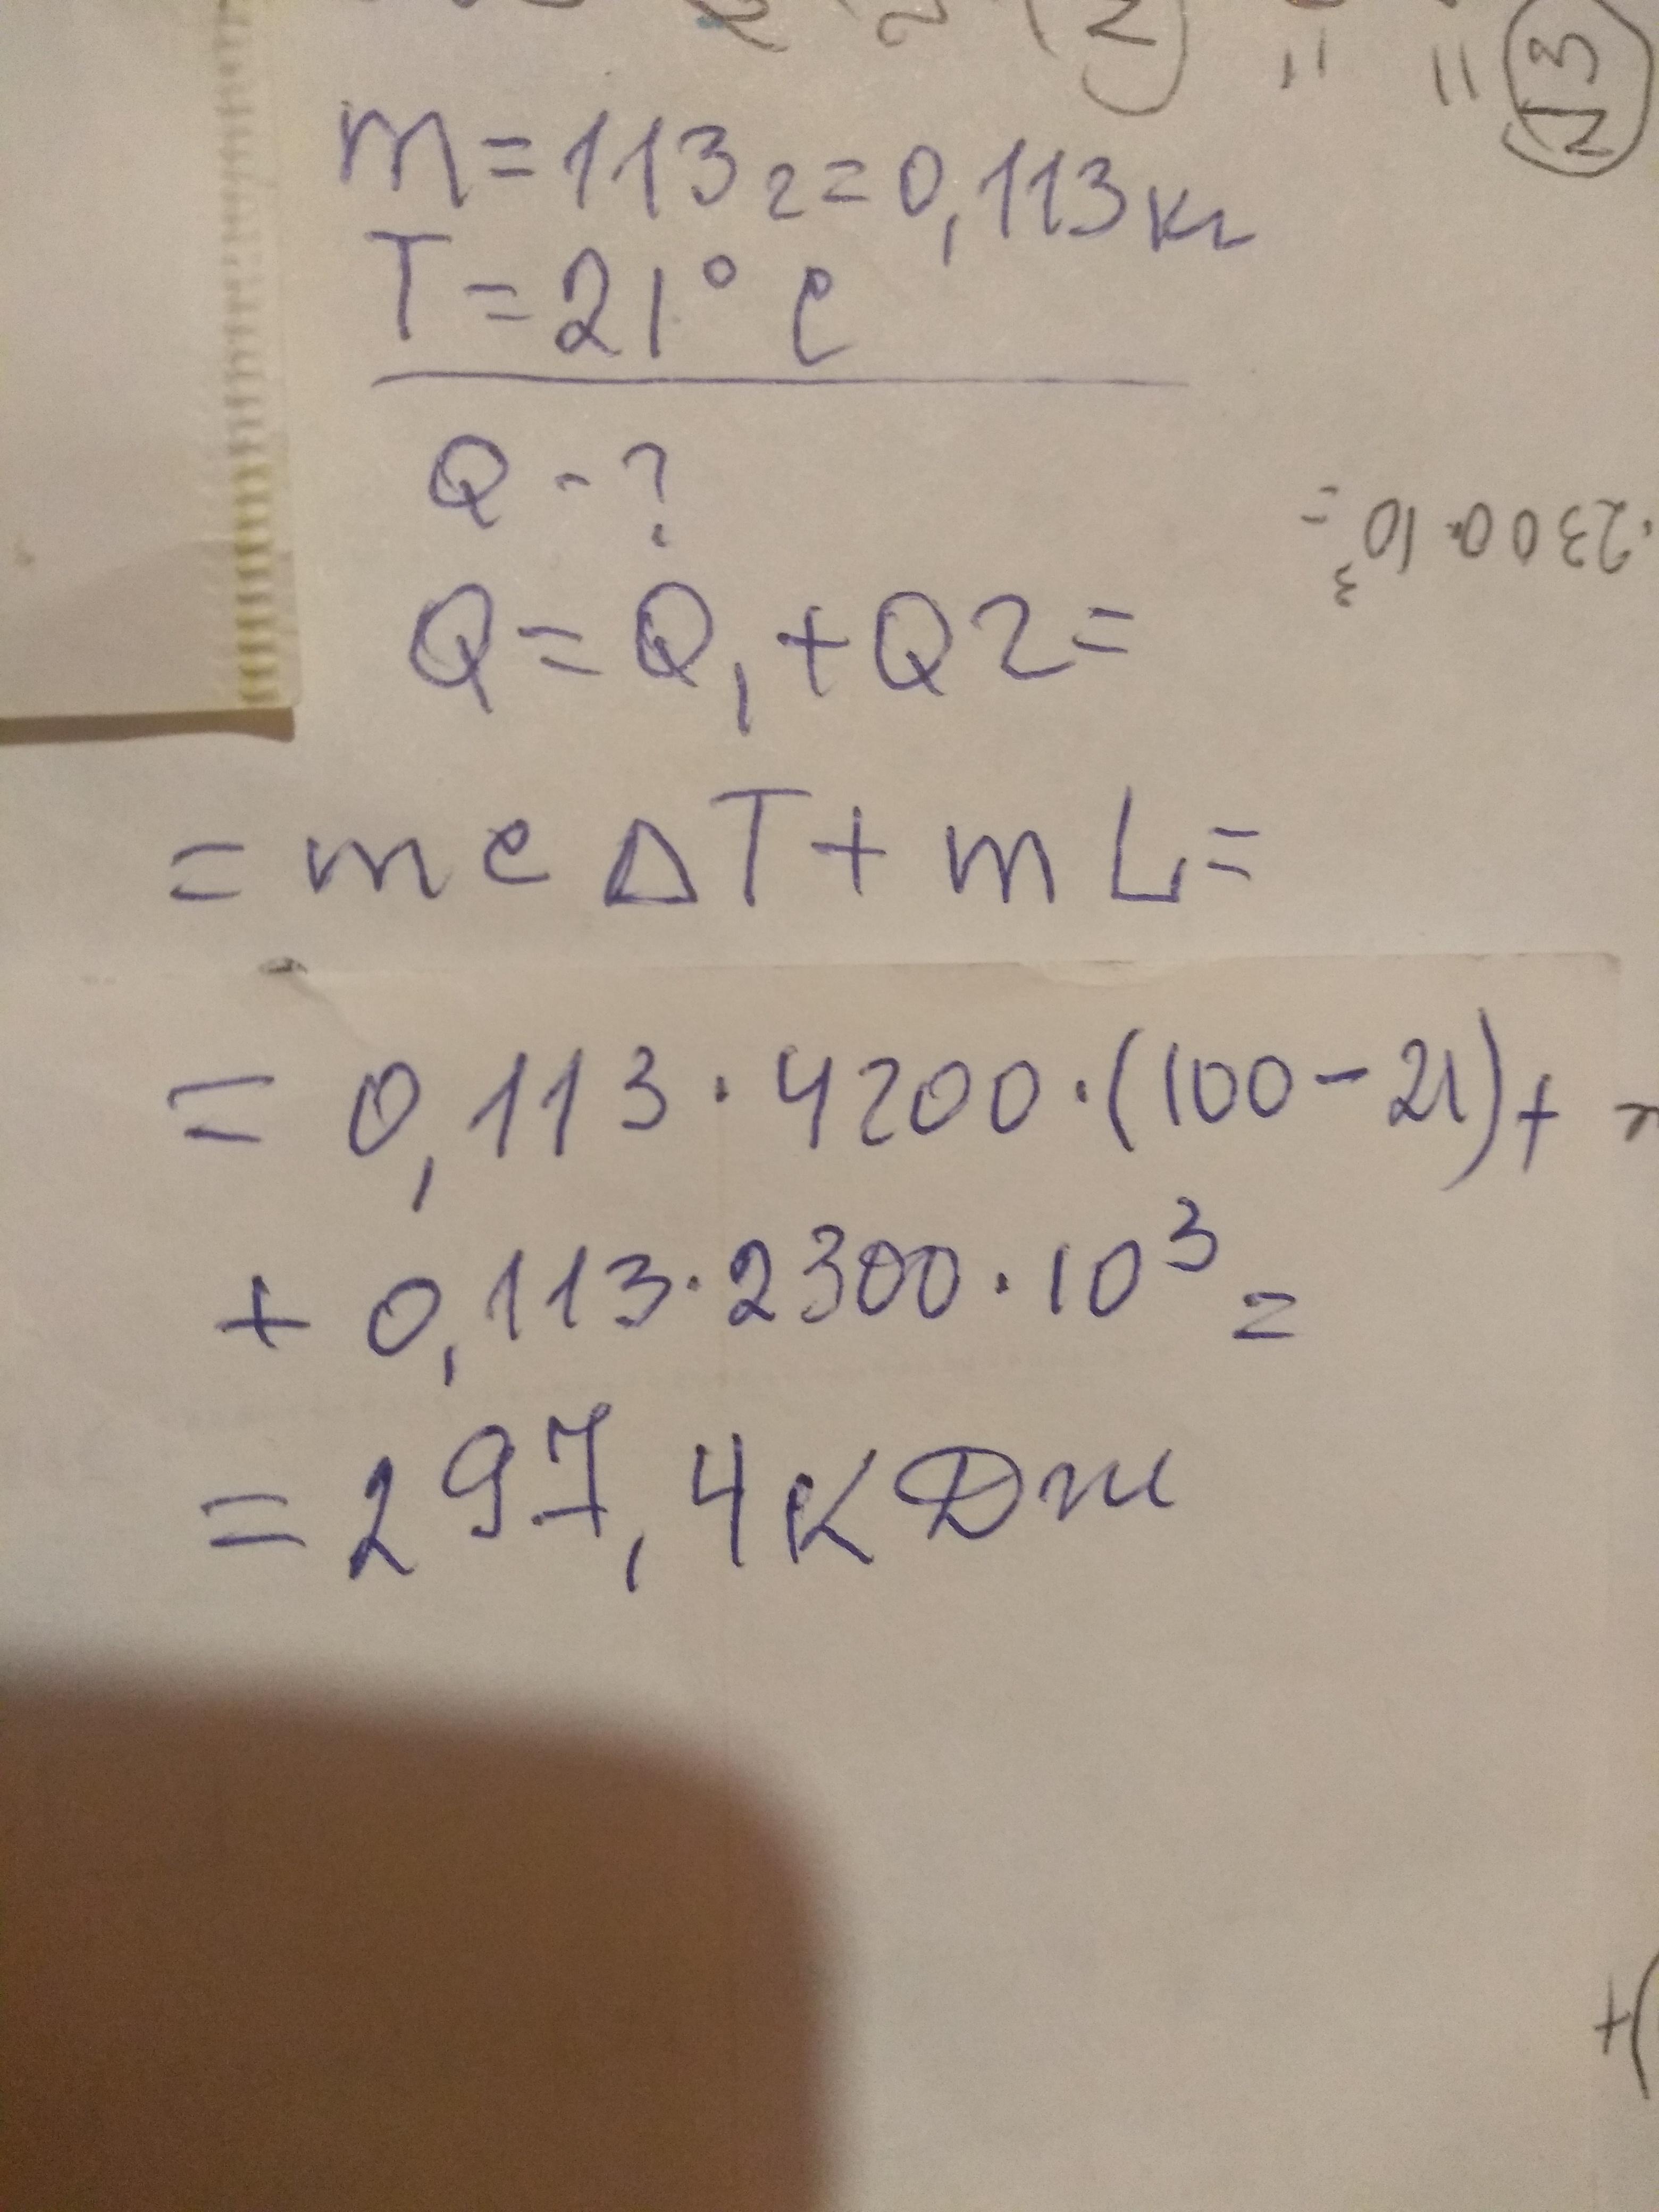 m = 113 г = 0,113 кг
T = 21° C
Q - ?
Q = Q1 + Q2 =
= m c ΔT + m L =
= 0,113 · 4200 · (100 - 21) +
+ 0,113 · 2300 · 10³ =
= 297,4 кДж
· 2300 · 10³ =